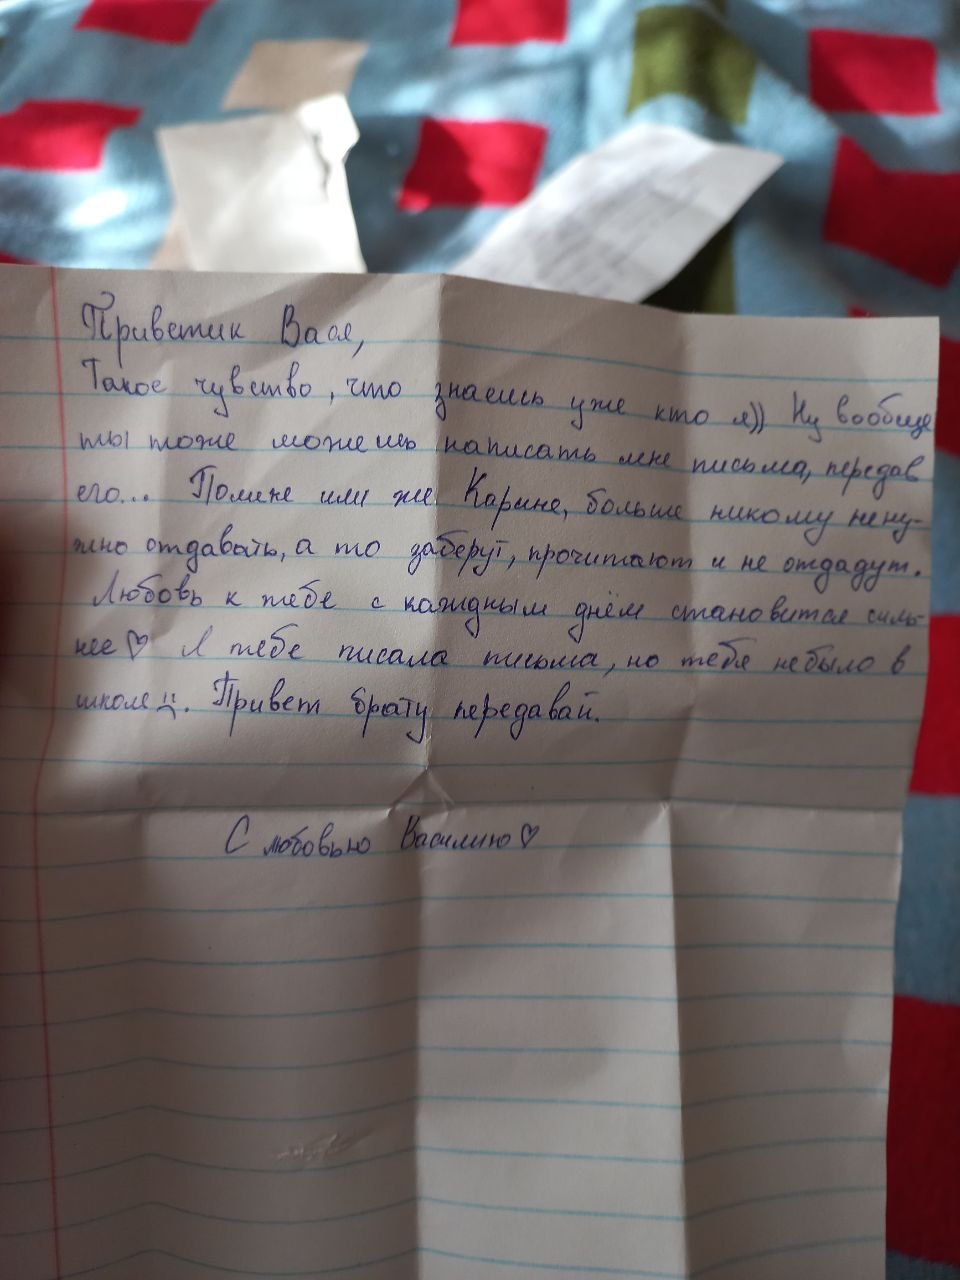 Приветик Вася,
Такое чувство, что знаешь уже кто я)) Ну вообще
ты тоже можешь написать мне письма, передав
его... Полине или же Карине, больше никому нену-
жно отдавать, а то заберут, прочитают и не отдадут.
Любовь к тебе с каждным днём становится силь-
нее♡ Я тебе писала письма, но тебя небыло в
школе :(. Привет брату передавай.
С любовью Василию♡